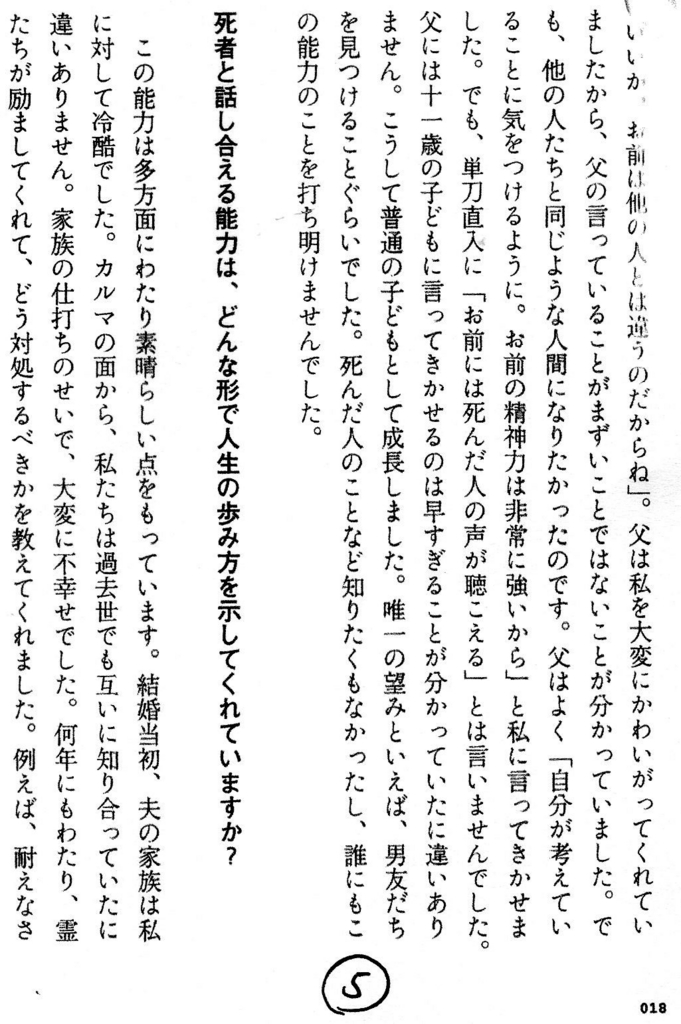 いいか、お前は他の人とは違うのだからね」。父は私を大変にかわいがってくれてい
ましたから、父の言っていることがまずいことではないことが分かっていました。で
も、他の人たちと同じような人間になりたかったのです。父はよく「自分が考えてい
ることに気をつけるように。お前の精神力は非常に強いから」と私に言ってきかせま
した。でも、単刀直入に「お前には死んだ人の声が聴こえる」とは言いませんでした。
父には十一歳の子どもに言ってきかせるのは早すぎることが分かっていたに違いあり
ません。こうして普通の子どもとして成長しました。唯一の望みといえば、男友だち
を見つけることぐらいでした。死んだ人のことなど知りたくもなかったし、誰にもこ
の能力のことを打ち明けませんでした。
死者と話し合える能力は、どんな形で人生の歩み方を示してくれていますか？
この能力は多方面にわたり素晴らしい点をもっています。結婚当初、夫の家族は私
に対して冷酷でした。カルマの面から、私たちは過去世でも互いに知り合っていたに
違いありません。家族の仕打ちのせいで、大変に不幸せでした。何年にもわたり、霊
たちが励ましてくれて、どう対処するべきかを教えてくれました。例えば、耐えなさ
5
018